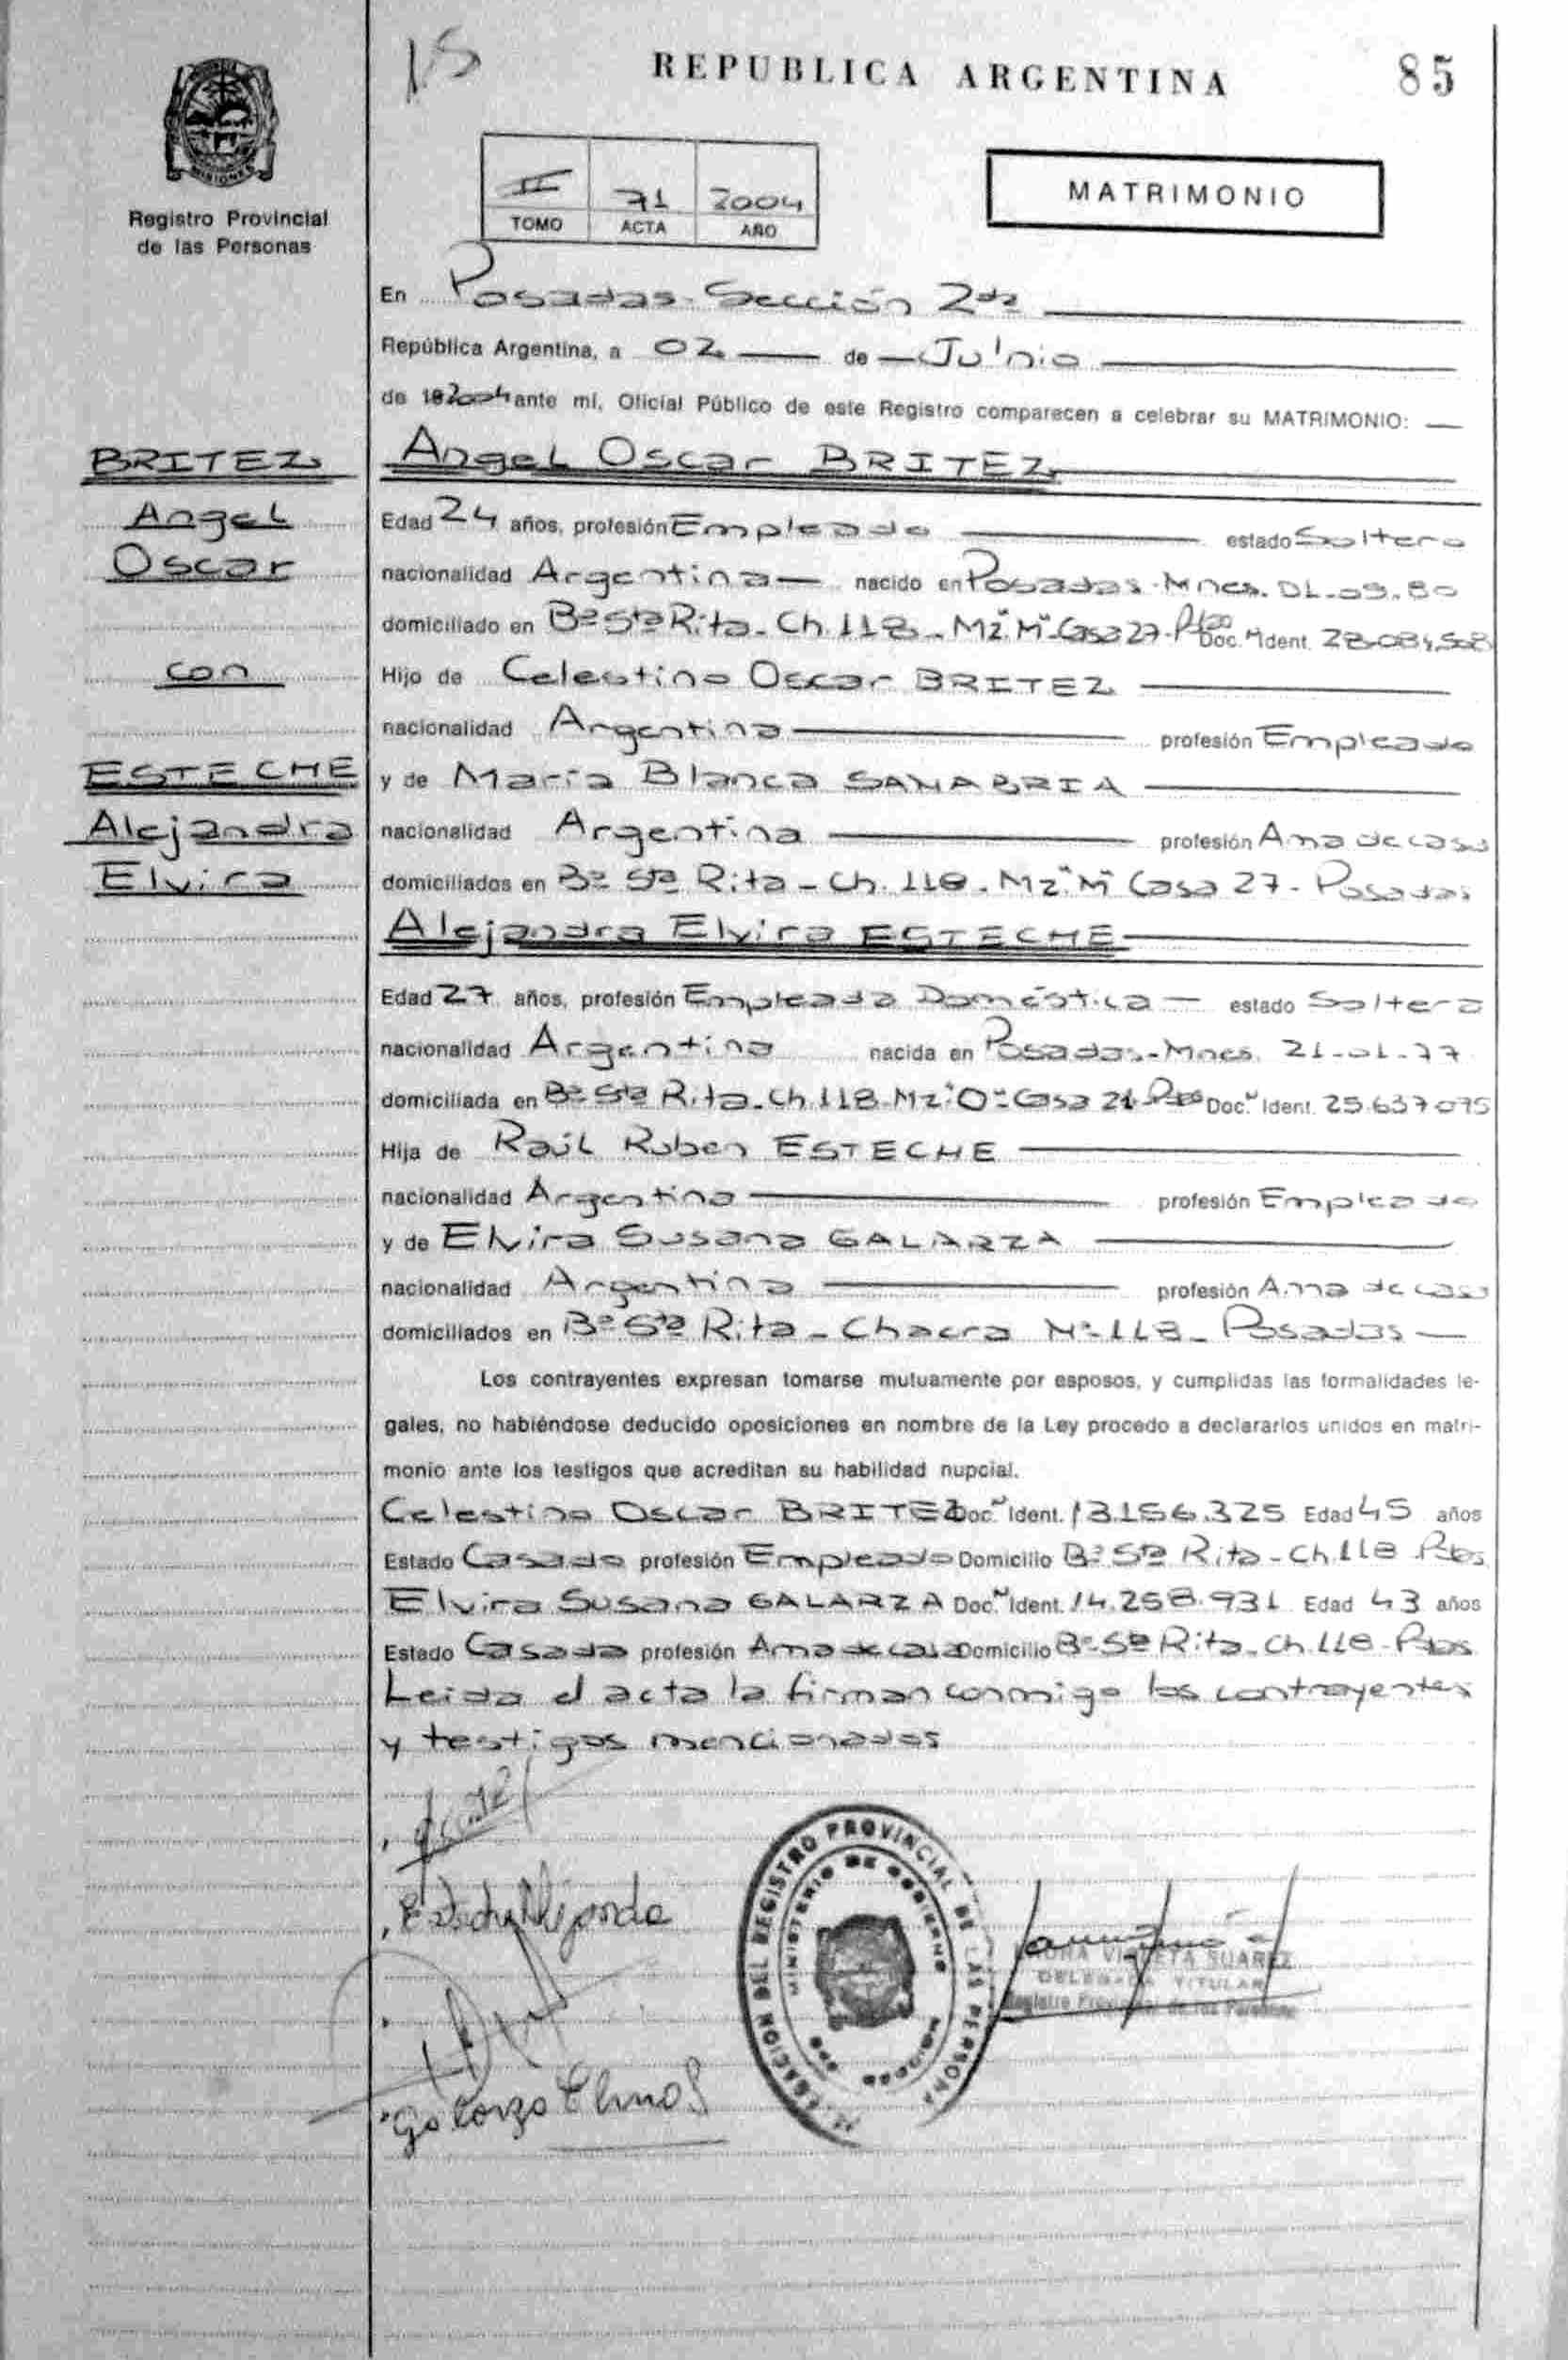 15
REPUBLICA ARGENTINA
85
MISIONES
Registro Provincial
de las Personas
II 71 2004
TOMO ACTA AÑO
MATRIMONIO
En Posadas- Sección 2da
República Argentina, a 02 de Junio
de 2004 ante mí, Oficial Público de este Registro comparecen a celebrar su MATRIMONIO:
BRITEZ
Angel
Oscar
con
ESTECHE
Alejandra
Elvira
Angel Oscar BRITEZ
Edad 24 años, profesión Empleado estado Soltero
nacionalidad Argentina nacido en Posadas-Mnes. 01-09-80
domiciliado en Bº Sta Rita- Ch. 118- Mz "M" Casa 27- Pdas Doc. Ident.
Hijo de Celestino Oscar BRITEZ
nacionalidad Argentina profesión Empleado
y de María Blanca SANABRIA
nacionalidad Argentina profesión Ama de casa
domiciliados en Bº Sta Rita - Ch. 118- Mz "M" Casa 27- Posadas
Alejandra Elvira ESTECHE
Edad 27 años, profesión Empleada Doméstica estado Soltera
nacionalidad Argentina nacida en Posadas-Mnes. 21-01-77
domiciliada en Bº Sta Rita-Ch.118-Mz "O" Casa 21-Pdas Doc. Ident. 25.637.075
Hija de Raúl Ruben ESTECHE
nacionalidad Argentina profesión Empleado
y de Elvira Susana GALARZA
nacionalidad Argentina profesión Ama de casa
domiciliados en Bº Sta Rita - Chacra Nº 118- Posadas
Los contrayentes expresan tomarse mutuamente por esposos, y cumplidas las formalidades le-
gales, no habiéndose deducido oposiciones en nombre de la Ley procedo a declararlos unidos en matri-
monio ante los testigos que acreditan su habilidad nupcial.
Celestino Oscar BRITEZ Doc. Ident. 13.156.325 Edad 45 años
Estado Casado profesión Empleado Domicilio Bº Sta Rita-Ch.118 Pdas
Elvira Susana GALARZA Doc. Ident. 14.258.931 Edad 43 años
Estado Casada profesión Ama de casa Domicilio Bº Sta Rita-Ch.118-Pdas
Leida el acta la firman conmigo los contrayentes
y testigos mencionados
Esteche Alejandra
Galarza Elvira S
DELEGACION DEL REGISTRO PROVINCIAL DE LAS PERSONAS
MINISTERIO DE GOBIERNO
MISIONES
SUAREZ
DELEGADA TITULAR
Registro Provincial de las Personas